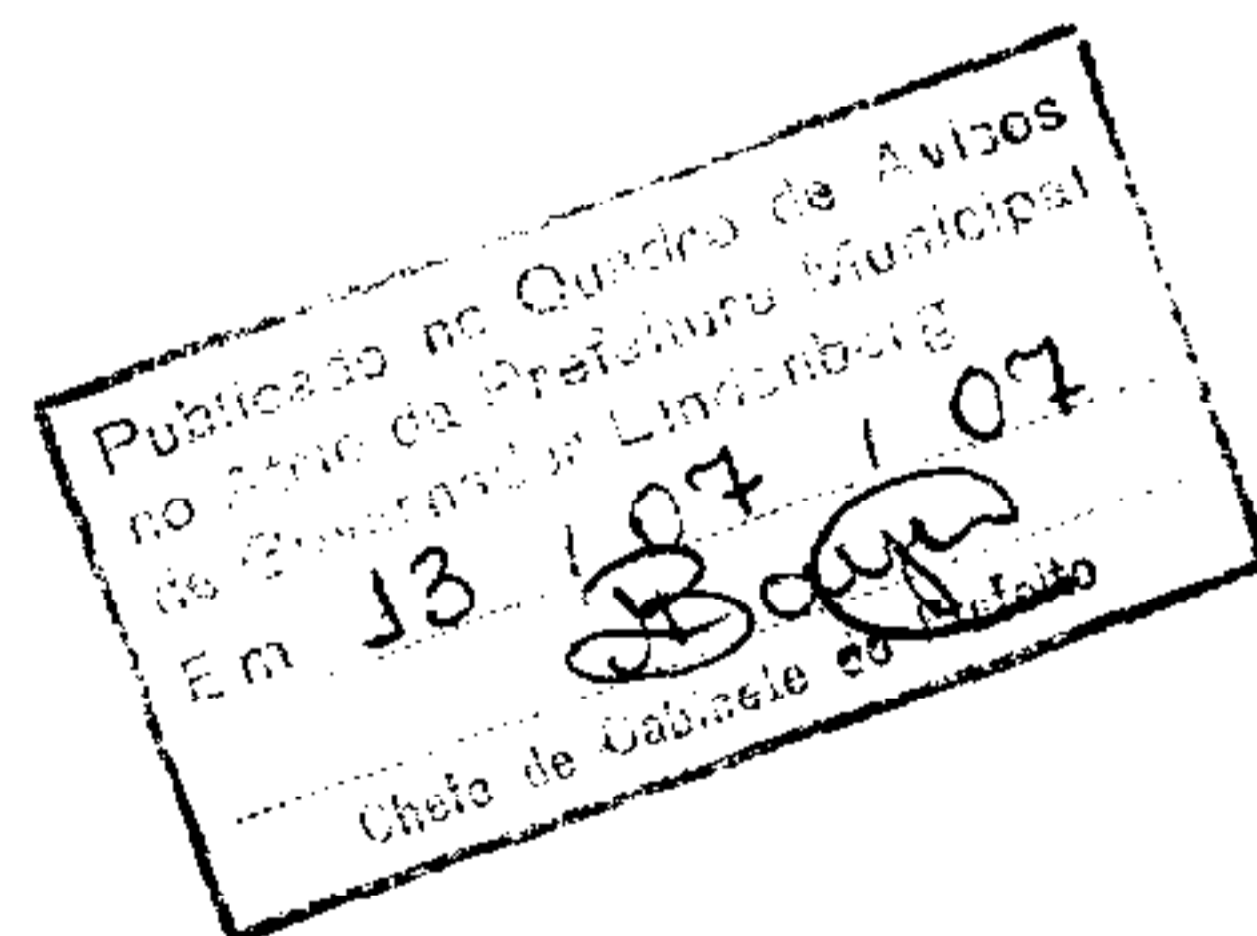 Publicado no Quadro de Avisos
no Átrio da Prefeitura Municipal
de Governador Lindenberg
Em 13 / 07 / 07
Chefe de Gabinete do Prefeito